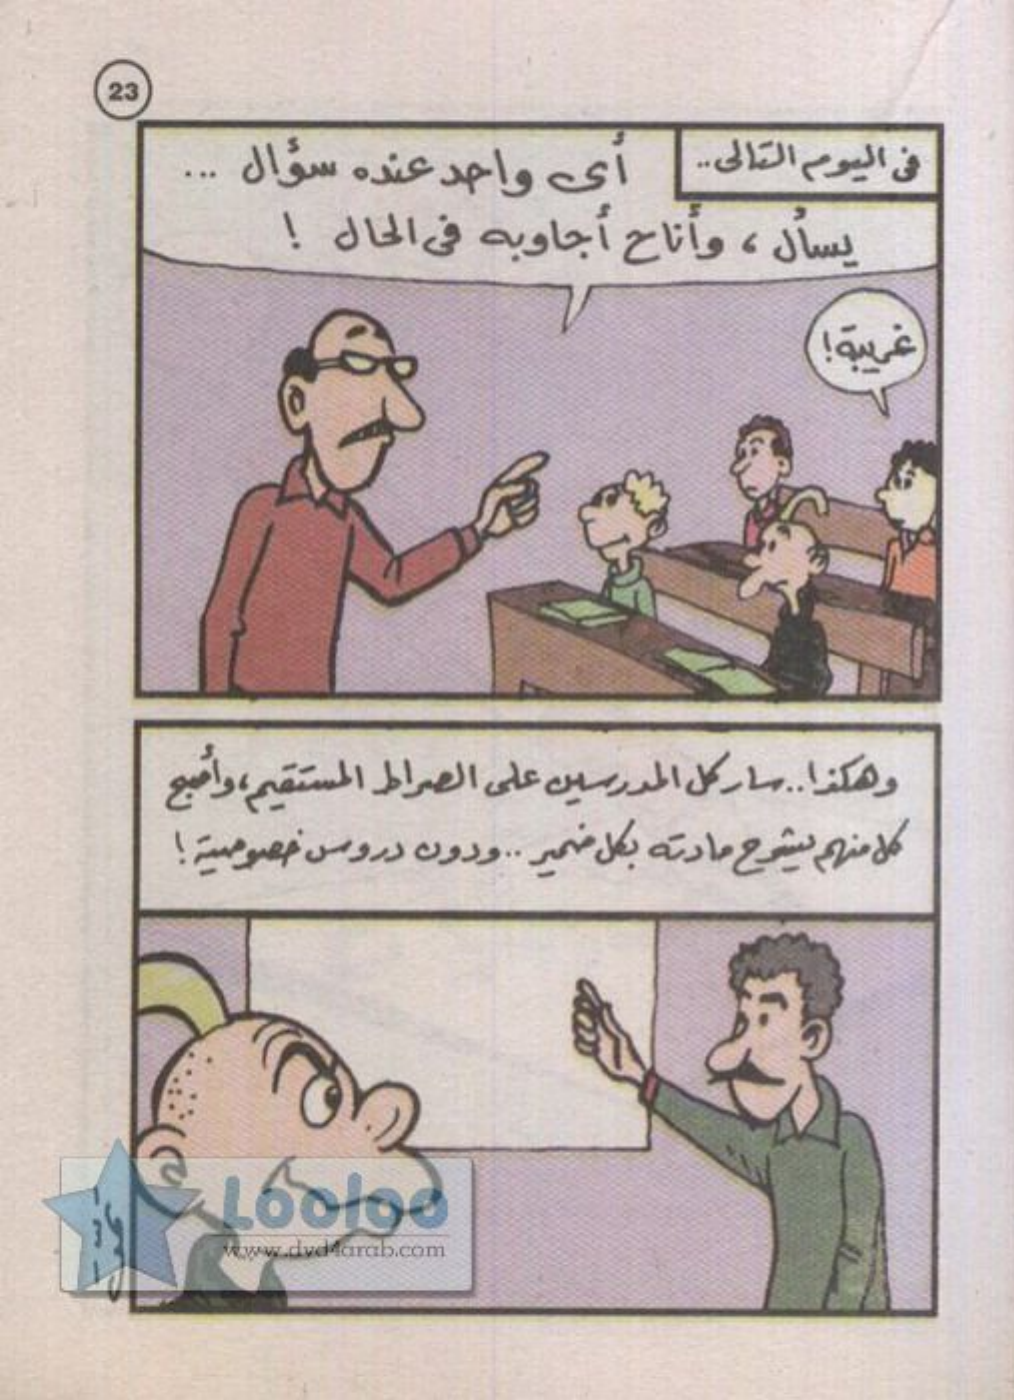 23
فى اليوم التالى..
أى واحد عنده سؤال ...
يسأل ، وأناح أجاوبه فى الحال !
غريبة!
وهكذا.. سار كل المدرسين على الصراط المستقيم، وأصبح
كل منهم يشرح مادته بكل ضمير .. ودون دروس خصوصية !
Looloo
www.dvd4arab.com